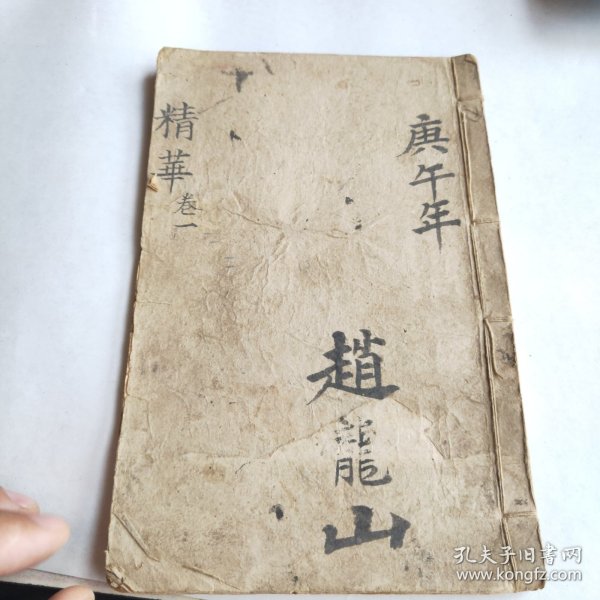 庚午年
趙龍山
精華卷一
孔夫子旧书网
www.kongfz.com